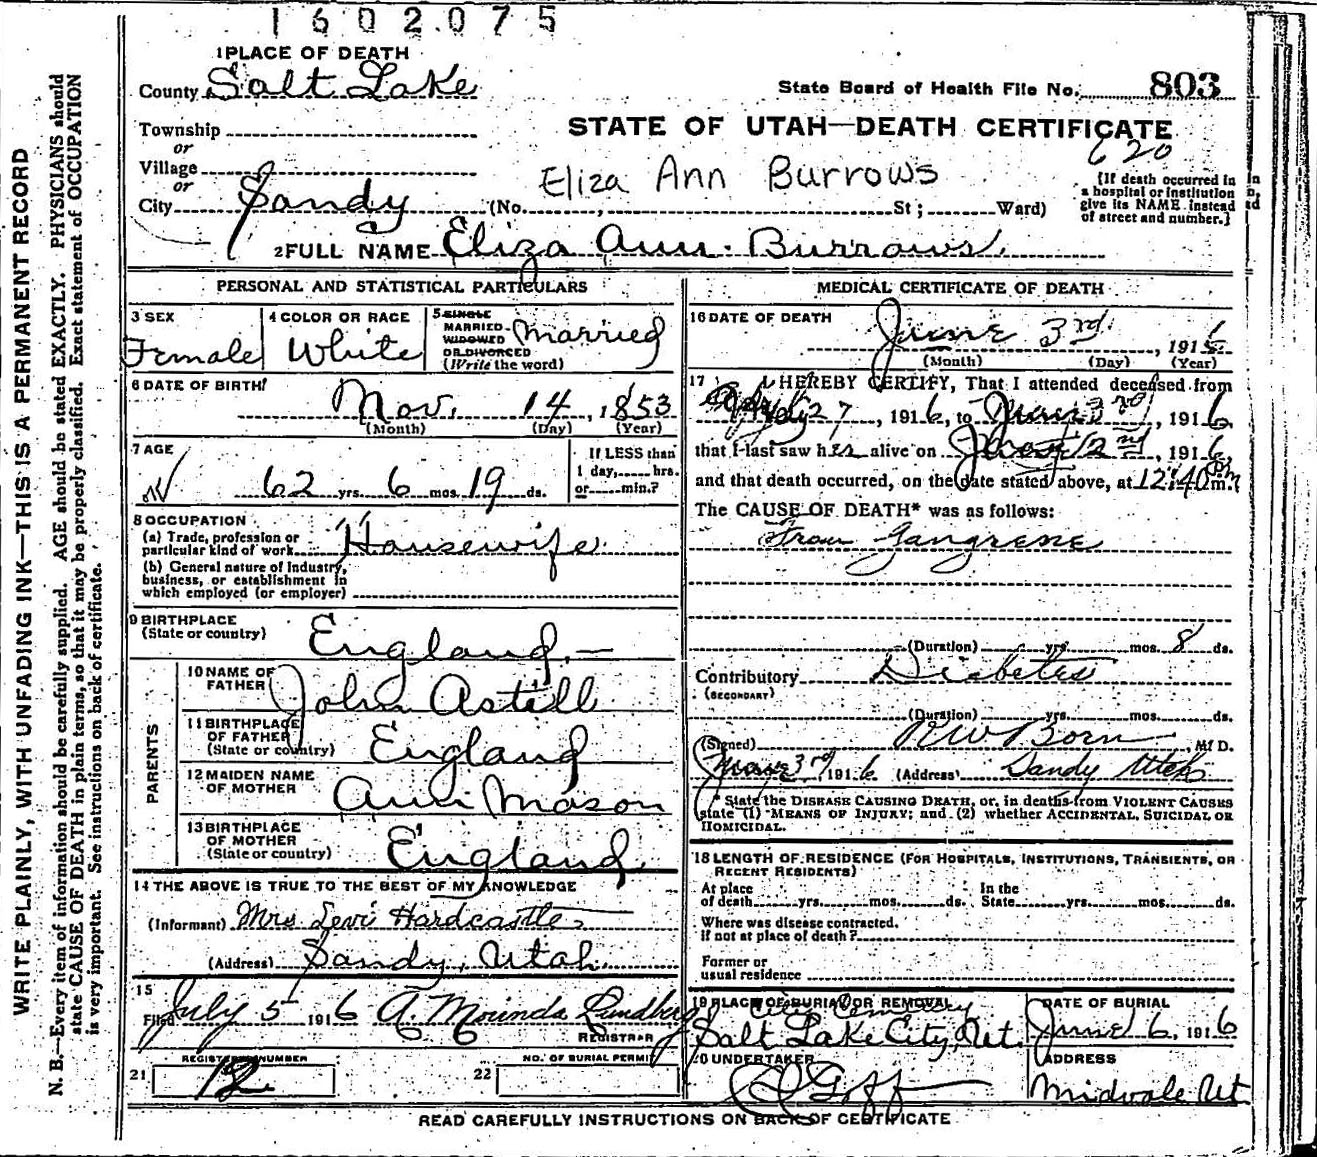 1602075
1 PLACE OF DEATH
County Salt Lake
State Board of Health File No. 803
Township
or
STATE OF UTAH—DEATH CERTIFICATE
620
Village
or
Eliza Ann Burrows
City Sandy (No. , St; Ward)
(If death occurred in
a hospital or institution
give its NAME instead
of street and number.)
2 FULL NAME Eliza Ann Burrows
PERSONAL AND STATISTICAL PARTICULARS
3 SEX
Female
4 COLOR OR RACE
White
5 SINGLE
MARRIED
WIDOWED
OR DIVORCED
(Write the word)
Married
6 DATE OF BIRTH
Nov. 14, 1853
(Month) (Day) (Year)
7 AGE
62 yrs. 6 mos. 19 ds.
If LESS than
1 day, hrs.
or min.?
8 OCCUPATION
(a) Trade, profession or
particular kind of work Housewife
(b) General nature of Industry,
business, or establishment in
which employed (or employer)
9 BIRTHPLACE
(State or country) England
PARENTS
10 NAME OF
FATHER John Astill
11 BIRTHPLACE
OF FATHER
(State or country) England
12 MAIDEN NAME
OF MOTHER Ann Mason
13 BIRTHPLACE
OF MOTHER
(State or country) England
14 THE ABOVE IS TRUE TO THE BEST OF MY KNOWLEDGE
(Informant) Mrs Levi Hardcastle
(Address) Sandy, Utah
15
Filed July 5 1916 A. Mourinda Lundberg
REGISTRAR
REGISTERED NUMBER
21 12
NO. OF BURIAL PERMIT
22
MEDICAL CERTIFICATE OF DEATH
16 DATE OF DEATH
June 3rd, 1916
(Month) (Day) (Year)
17 I HEREBY CERTIFY, That I attended deceased from
27, 1916, to June 3rd, 1916,
that I last saw her alive on June 2nd, 1916,
and that death occurred, on the date stated above, at 12:40 Pm.
The CAUSE OF DEATH* was as follows:
From Gangrene
(Duration) yrs. mos. 8 ds.
Contributory Diabetes
(SECONDARY)
(Duration) yrs. mos. ds.
(Signed) R W Born, M. D.
June 3rd 1916 (Address) Sandy Utah
* State the DISEASE CAUSING DEATH, or, in deaths from VIOLENT CAUSES
state (1) MEANS OF INJURY; and (2) whether ACCIDENTAL, SUICIDAL OR
HOMICIDAL.
18 LENGTH OF RESIDENCE (FOR HOSPITALS, INSTITUTIONS, TRANSIENTS, OR
RECENT RESIDENTS)
At place
of death yrs. mos. ds.
In the
State yrs. mos. ds.
Where was disease contracted.
If not at place of death?
Former or
usual residence
19 PLACE OF BURIAL OR REMOVAL
City Cemetery
Salt Lake City, Ut.
DATE OF BURIAL
June 6, 1916
20 UNDERTAKER
Goff
ADDRESS
Midvale Ut
READ CAREFULLY INSTRUCTIONS ON BACK OF CERTIFICATE
WRITE PLAINLY, WITH UNFADING INK—THIS IS A PERMANENT RECORD
N. B.—Every item of information should be carefully supplied. AGE should be stated EXACTLY. PHYSICIANS should
state CAUSE OF DEATH in plain terms, so that it may be properly classified. Exact statement of OCCUPATION
is very important. See instructions on back of certificate.